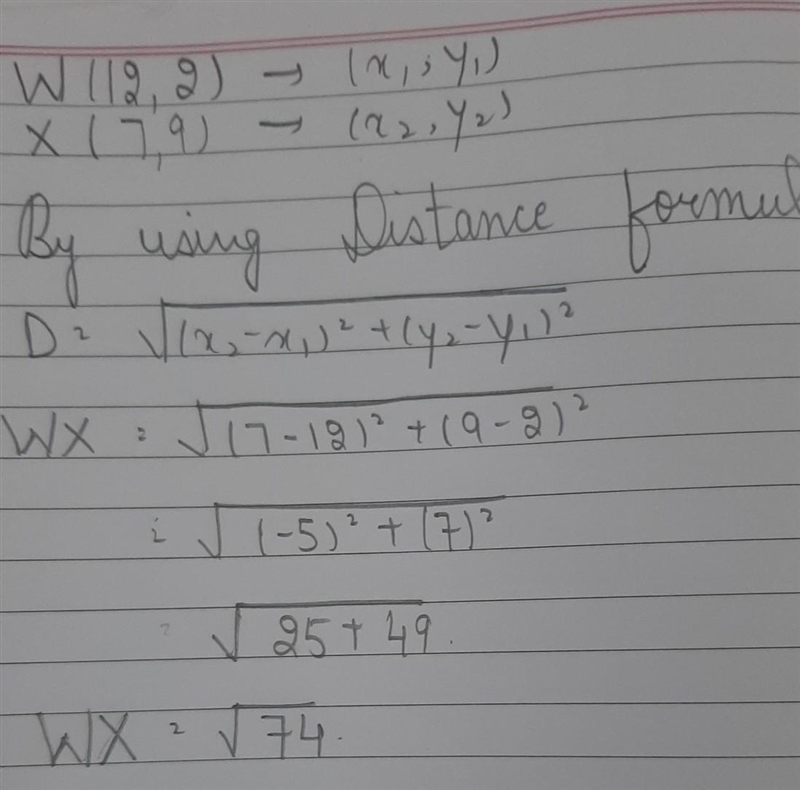 W (12, 2) → (x₁, y₁)
X (7, 9) → (x₂, y₂)
By using Distance formul
D = √(x₂-x₁)² + (y₂-y₁)²
WX = √(7-12)² + (9-2)²
= √(-5)² + (7)²
= √25 + 49.
WX = √74.